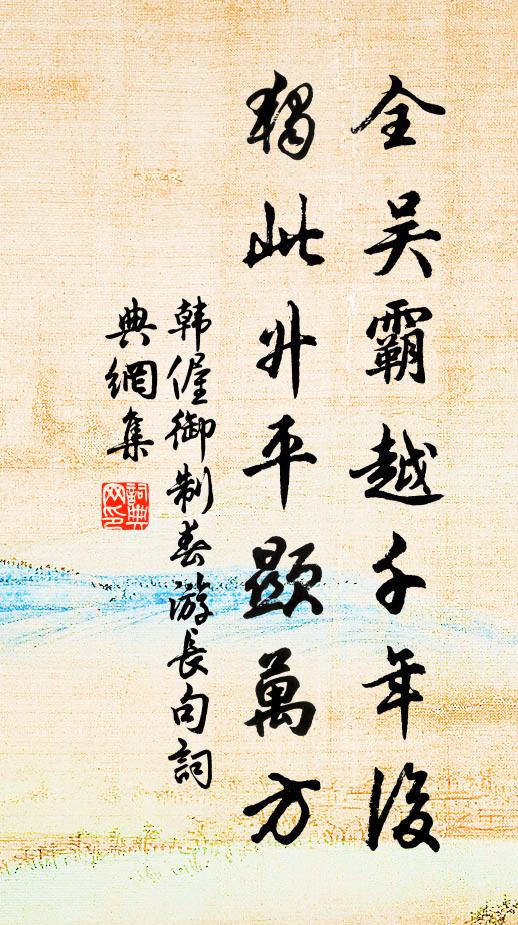 全吴霸越千年後
獨此升平顯萬方
韩偓御制春游長句詞
典網集
詞典
网印